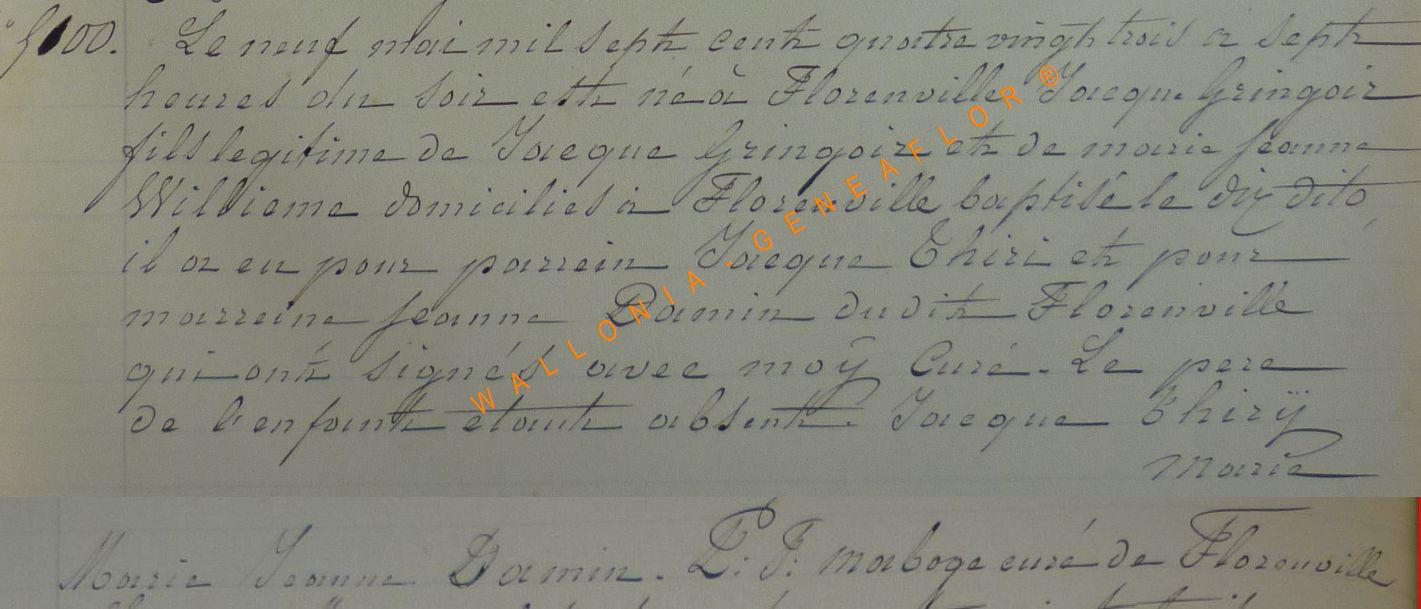 5100. Le neuf mai mil sept cent quatre vingh trois a sept
heures du soir est né à Florenville Jacque Gringoir
fils legitime de Jacque Gringoir et de marie jeanne
Willieme domiciliés a Florenville baptisé le dix dito,
il a eu pour parrein Jacque Thiri et pour
marreine jeanne Damin dudit Florenville
qui ont signés avec moÿ Curé. Le pere
de l'enfant etant absent. Jacque Thirÿ
Marie
Marie Jeanne Damin. P. J. maboge curé de Florenville
WALLONIA . GENEAFLOR ®